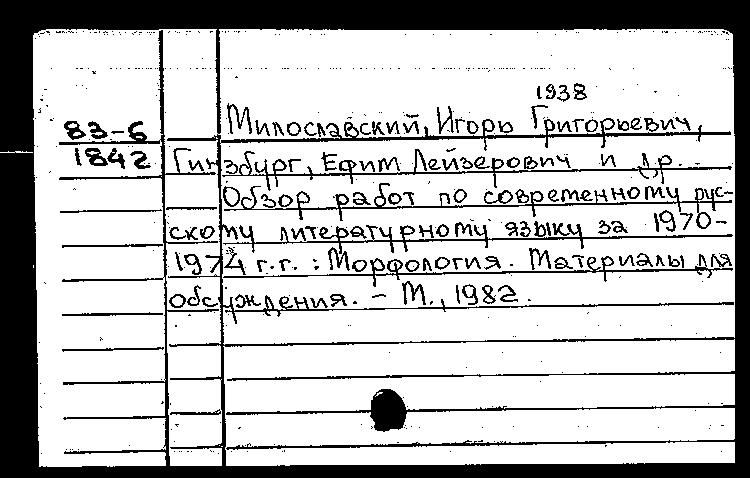 1938
83-6 Милославский, Игорь Григорьевич,
1842 Гинзбург, Ефим Лейзерович и др.
Обзор работ по современному рус-
скому литературному языку за 1970-
1974 г.г. : Морфология. Материалы для
обсуждения. - М., 1982.